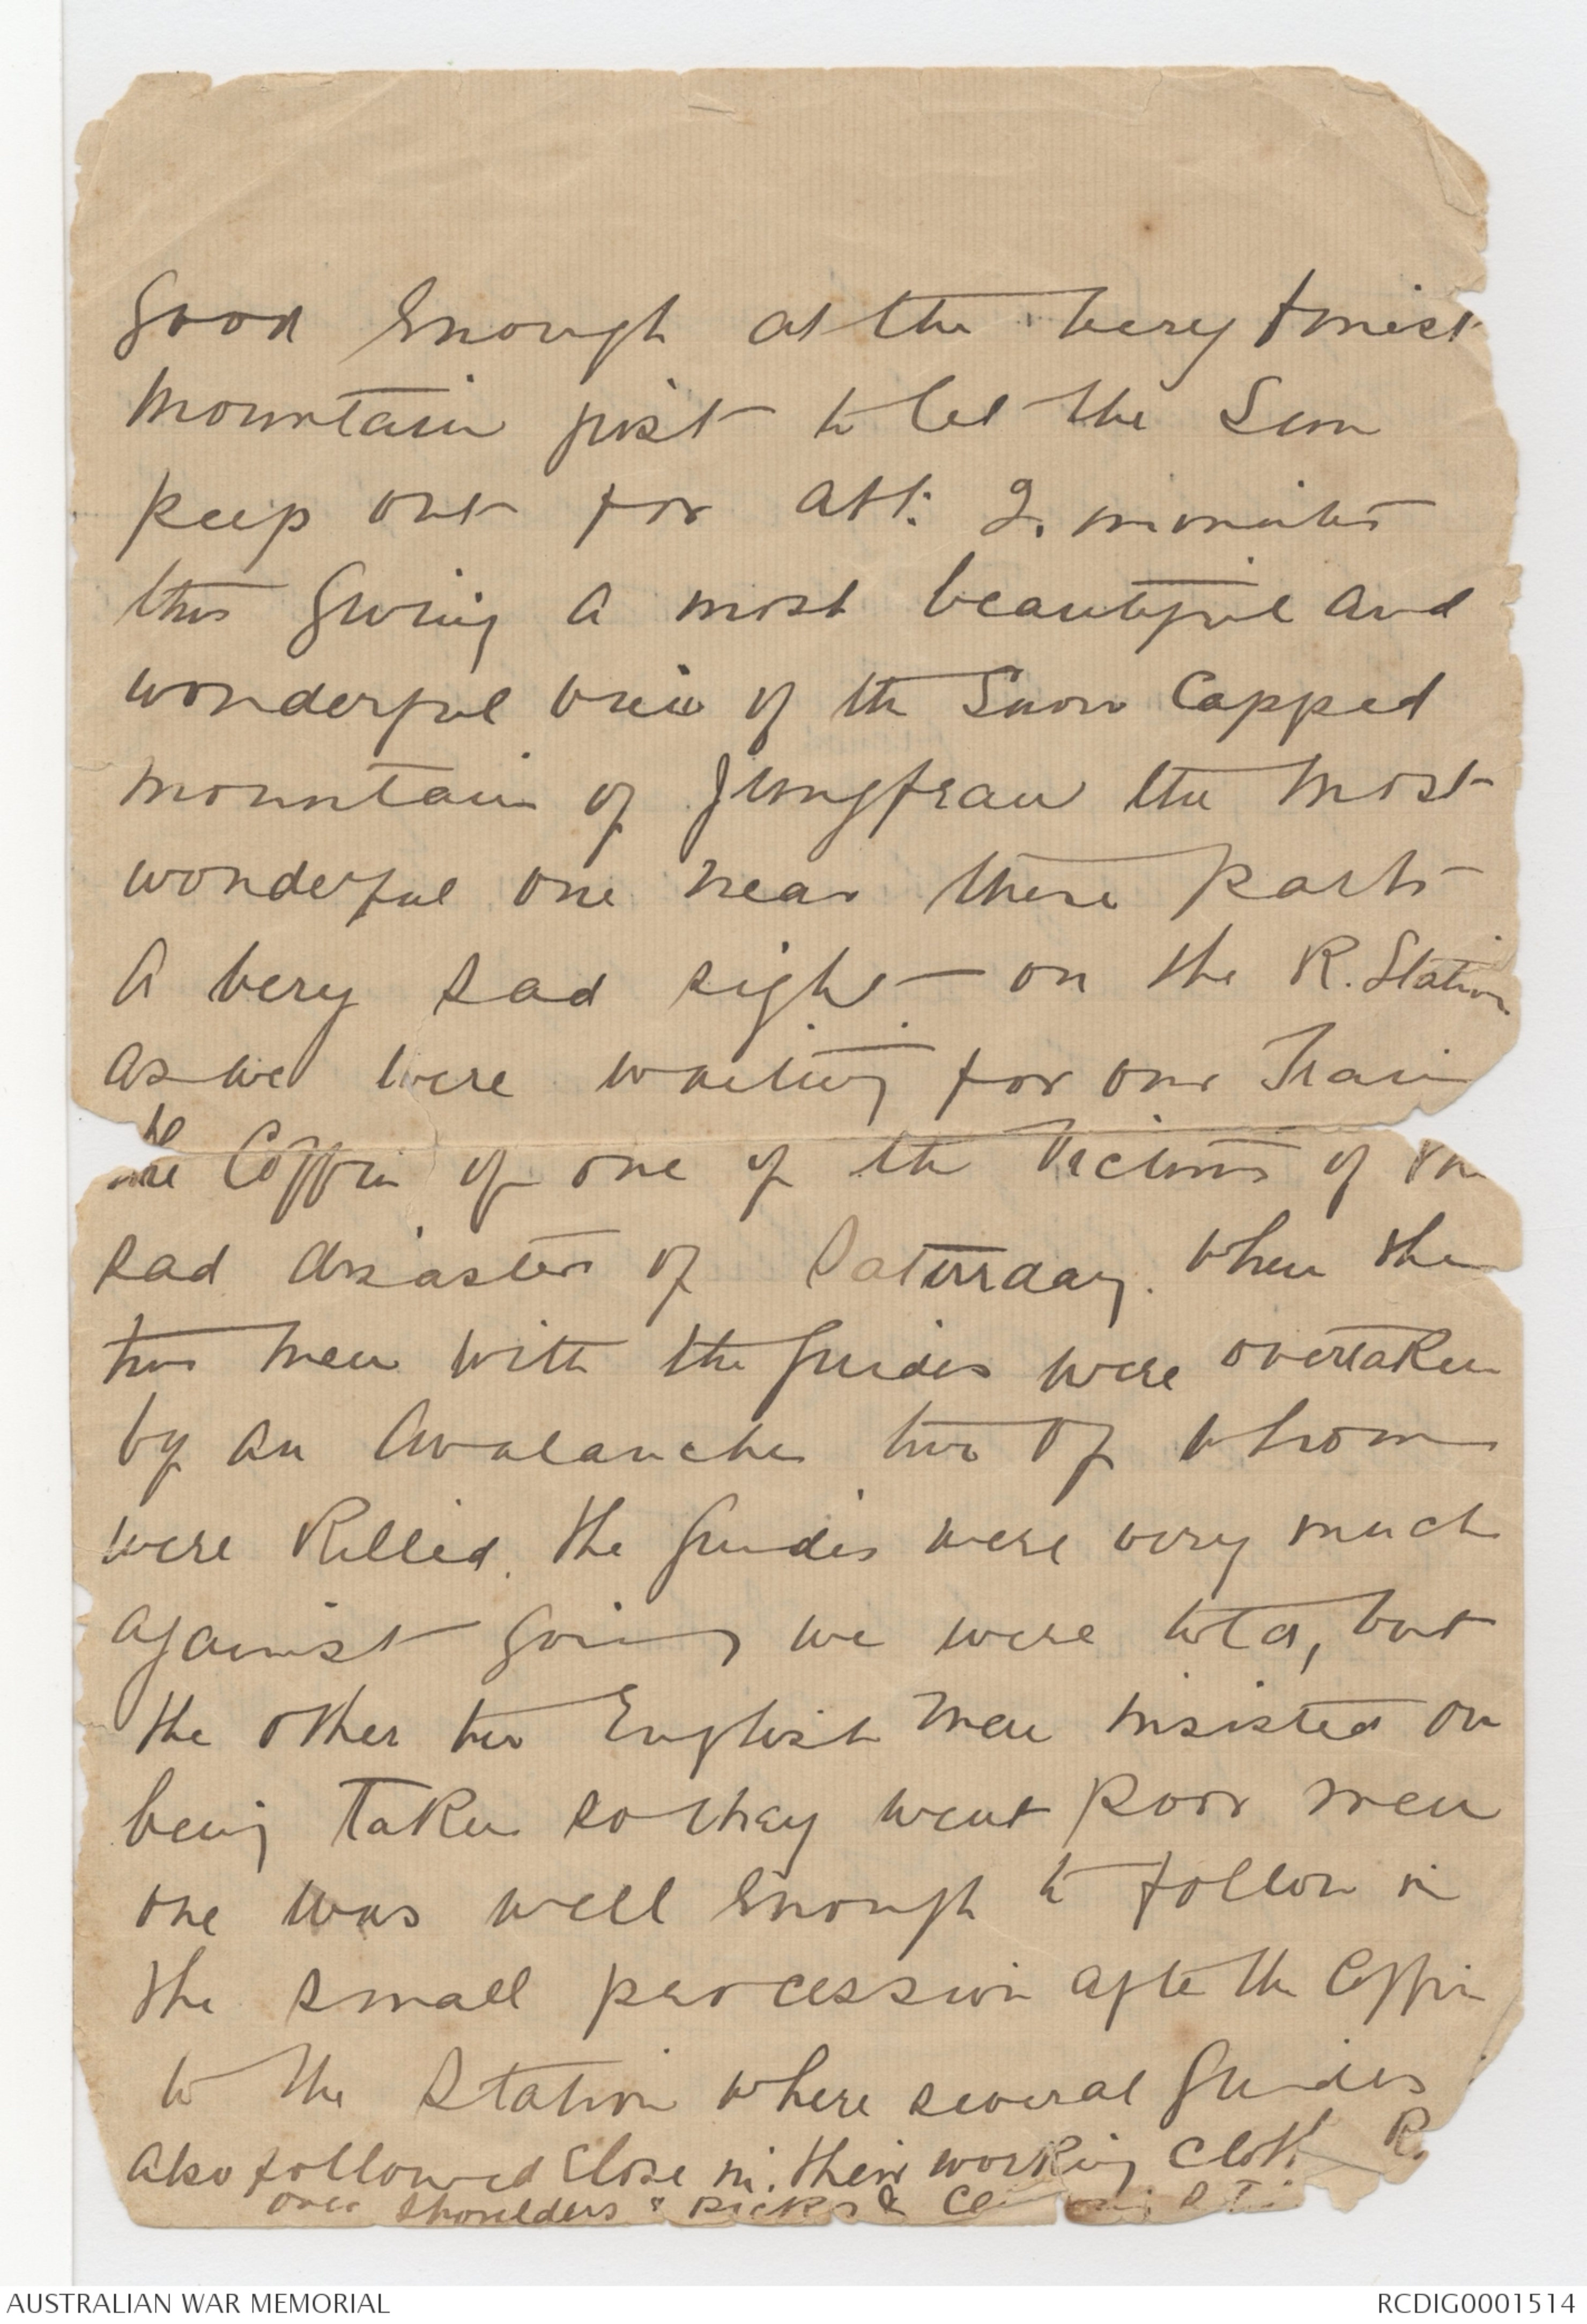 good enough at the very
Mountain just to let the Sun
peep out for abt: 2. minutes
this giving a most beautiful and
wonderful view of the Snow Capped
mountain of Jungfrau the most
wonderful one near these parts
A very sad sight on the R. Station
as we were waiting for our Train
the Coffin of one of the Victims of the
sad disaster of Saturday. when the
two men with the guides were overtaken
by an Avalanche two of whom
were Killed. The guides were very much
against going we were told, but
the other two English men insisted on
being taken so they went poor men
one was well enough to follow in
the small procession after the Coffin
to the Station where several guides
also followed close in their working
over shoulders & picks &
AUSTRALIAN WAR MEMORIAL
RCDIG0001514